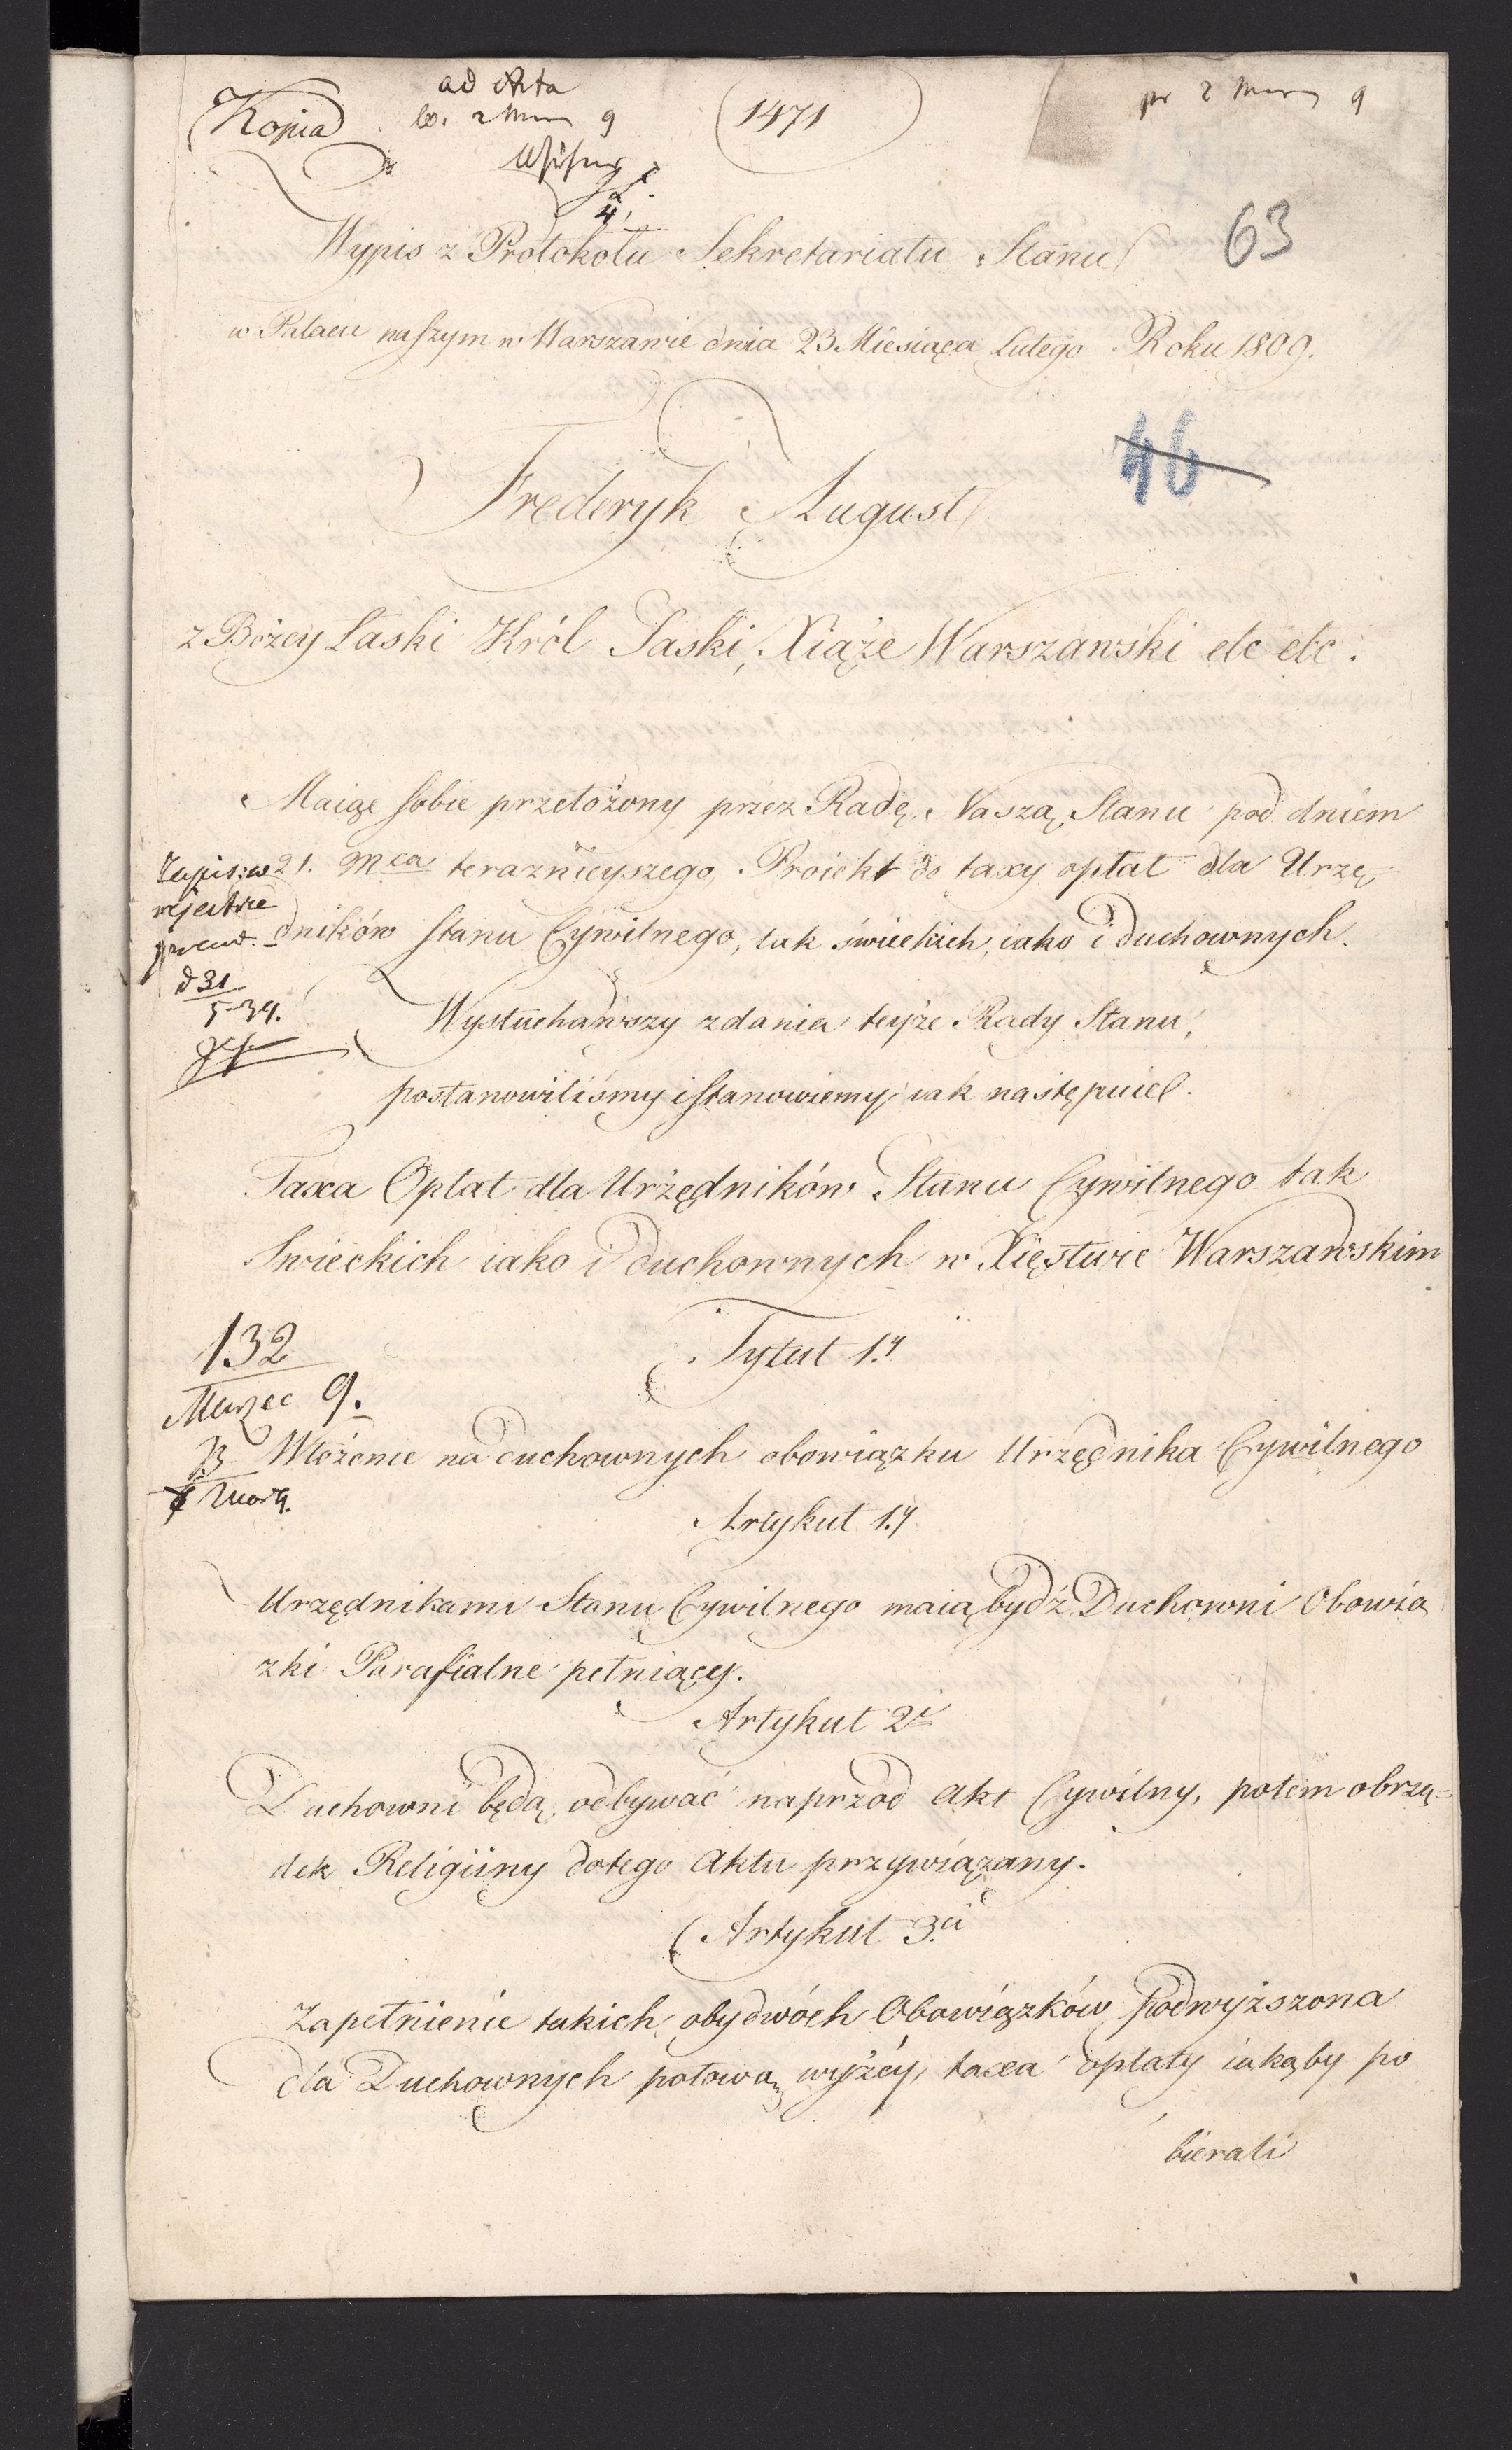 Kopia
ad Acta
1471
pr 2 9
4
Wypis z Protokołu Sekretariatu Stanu
63
w Pałacu naszym w Warszawie dnia 23 Miesiąca Lutego Roku 1809.
46
Frederyk August
z Bożey Łaski Król Saski, Xiąże Warszawski etc etc.
Maiąc sobie przełożony przez Radę Naszą Stanu pod dniem
21. Mca teraznieyszego, Proiekt do taxy opłat dla Urzę
dników Stanu Cywilnego, tak świeckich, iako i duchownych.
Zapis: w
rejestrze
d 31
5 39.
Wysłuchawszy zdania teyże Rady Stanu,
postanowiliśmy i stanowiemy, iak następuie.
Taxa Opłat dla Urzędników Stanu Cywilnego tak
Swieckich iako i duchownych w Xięstwie Warszawskim
132
Marzec 9.
Tytuł 1.y
Włożenie na duchownych obowiązku Urzędnika Cywilnego
Artykuł 1.y
Urzędnikami Stanu Cywilnego maią bydź Duchowni Obowią
zki Parafialne pełniący.
Artykuł 2i
Duchowni będą odbywać naprzod Akt Cywilny, potem obrzą=
dek Religiiny do tego Aktu przywiązany.
Artykuł 3.ci
Zapełnienie takich obydwóch Obowiązków podwyższona
dla Duchownych połową wyżéy, taxa opłaty iakąby po
bierali